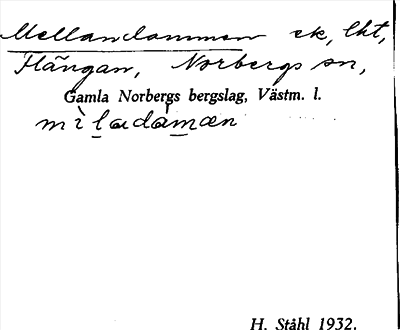 Mellandammen ek, lht,
Flängan, Norbergs sn,
Gamla Norbergs bergslag, Västm. l.
mìladámæn
H. Ståhl 1932.